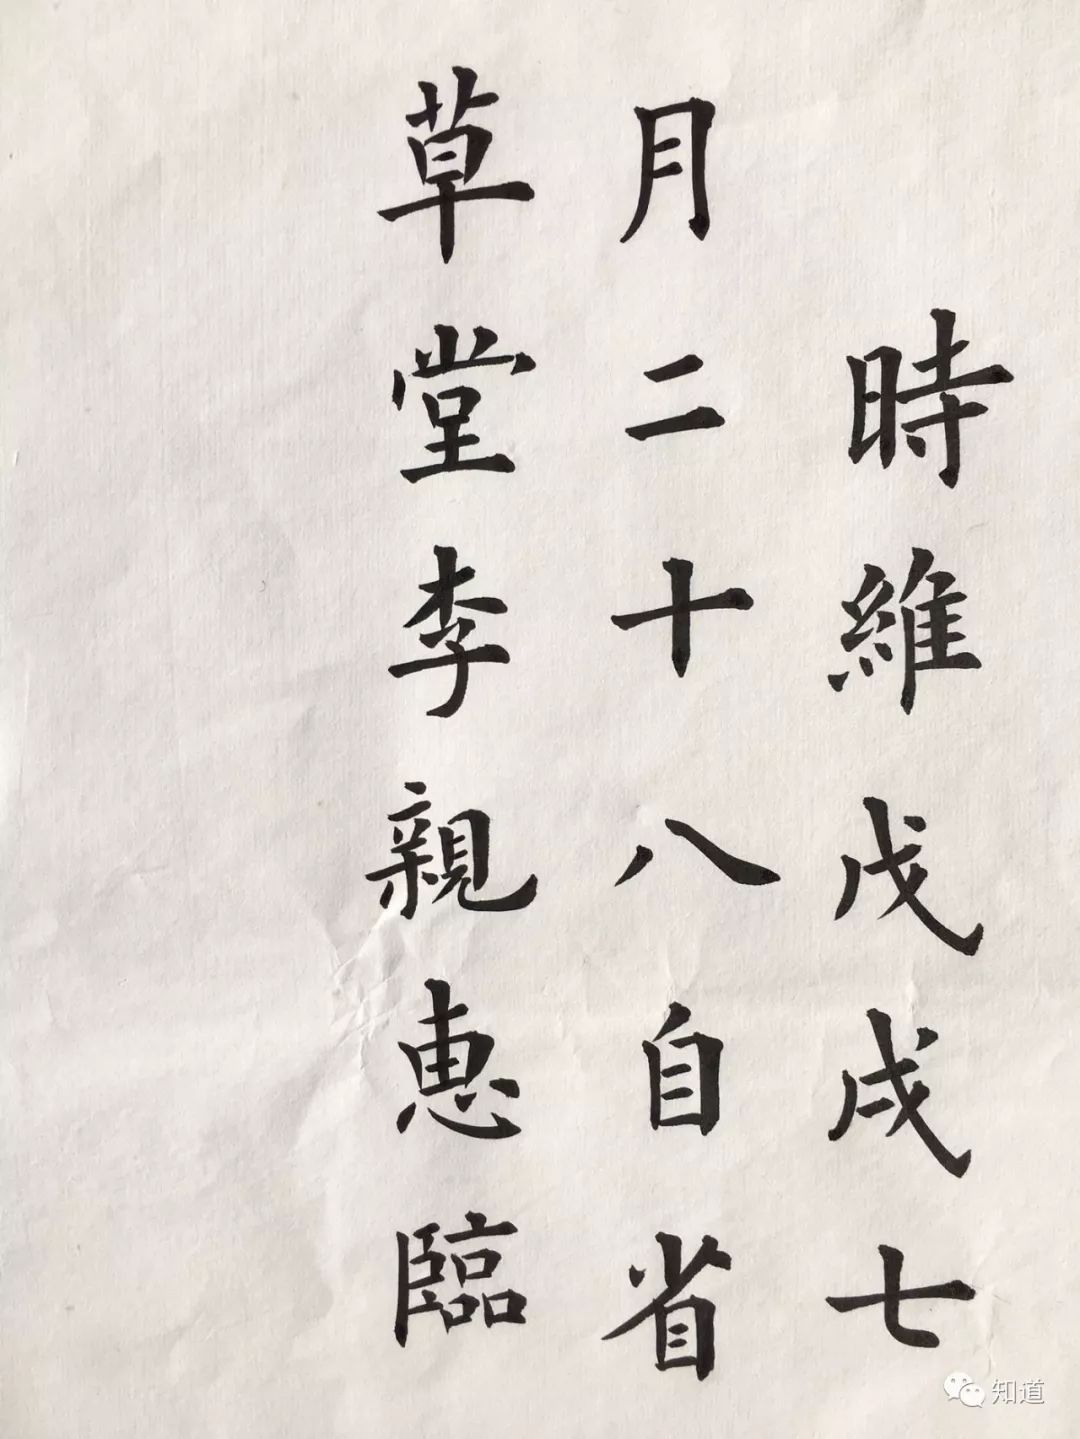 時維戊戌七
月二十八自省
草堂李親惠臨
知道